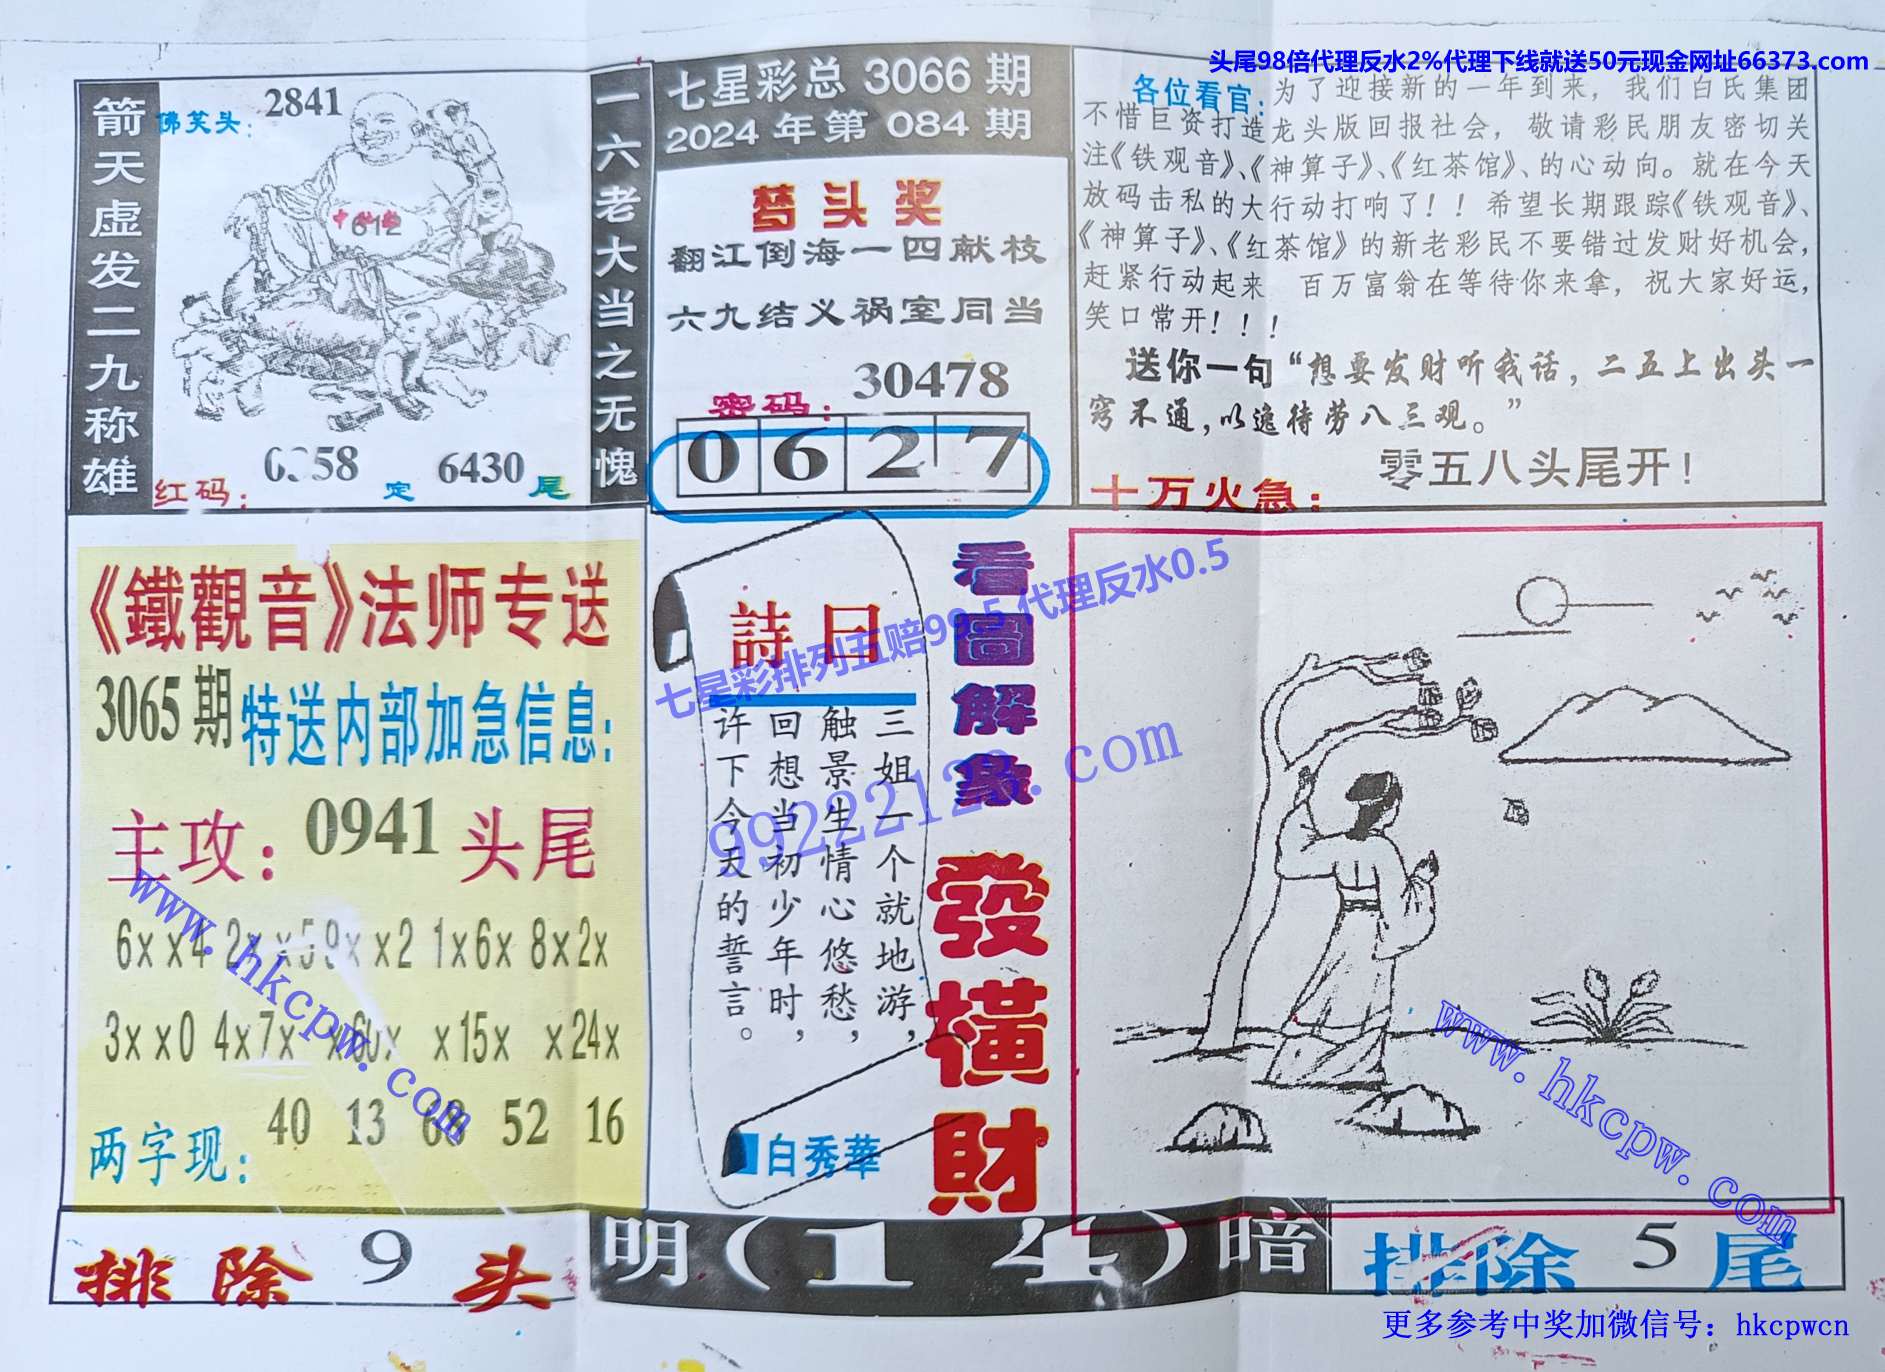 头尾98倍代理反水2%代理下线就送50元现金网址66373.com
箭天虚发二九称雄
佛笑头：2841
612
红码：
定 6430 尾
一六老大当之无愧
七星彩总 3066 期
2024 年第 084 期
梦头奖
翻江倒海一四献枝
六九结义祸室同当
密码：30478
0 6 2 7
各位看官：为了迎接新的一年到来，我们白氏集团
不惜巨资打造龙头版回报社会，敬请彩民朋友密切关
注《铁观音》、《神算子》、《红茶馆》、的心动向。就在今天
放码击私的大行动打响了！！希望长期跟踪《铁观音》、
《神算子》、《红茶馆》的新老彩民不要错过发财好机会，
赶紧行动起来 百万富翁在等待你来拿，祝大家好运，
笑口常开！！！
送你一句“想要发财听我话，二五上出头一
窍不通，以逸待劳八三观。”
十万火急：零五八头尾开！
《鐵觀音》法师专送
3065期 特送内部加急信息：
主攻：0941 头尾
6xx4 2xx5 9xx2 1x6x 8x2x
3xx0 4x7x x60x x15x x24x
两字现：40 13 68 52 16
詩曰
三姐一个就地游，
触景生情心悠愁，
回想当初少年时，
许下今天的誓言。
白秀華
看圖解象
發橫財
七星彩排列五赔99.5 代理反水0.5
99222123.com
www.hkcpw.com
www.hkcpw.com
排除 9 头
明（14）暗
排除 5 尾
更多参考中奖加微信号：hkcpwcn